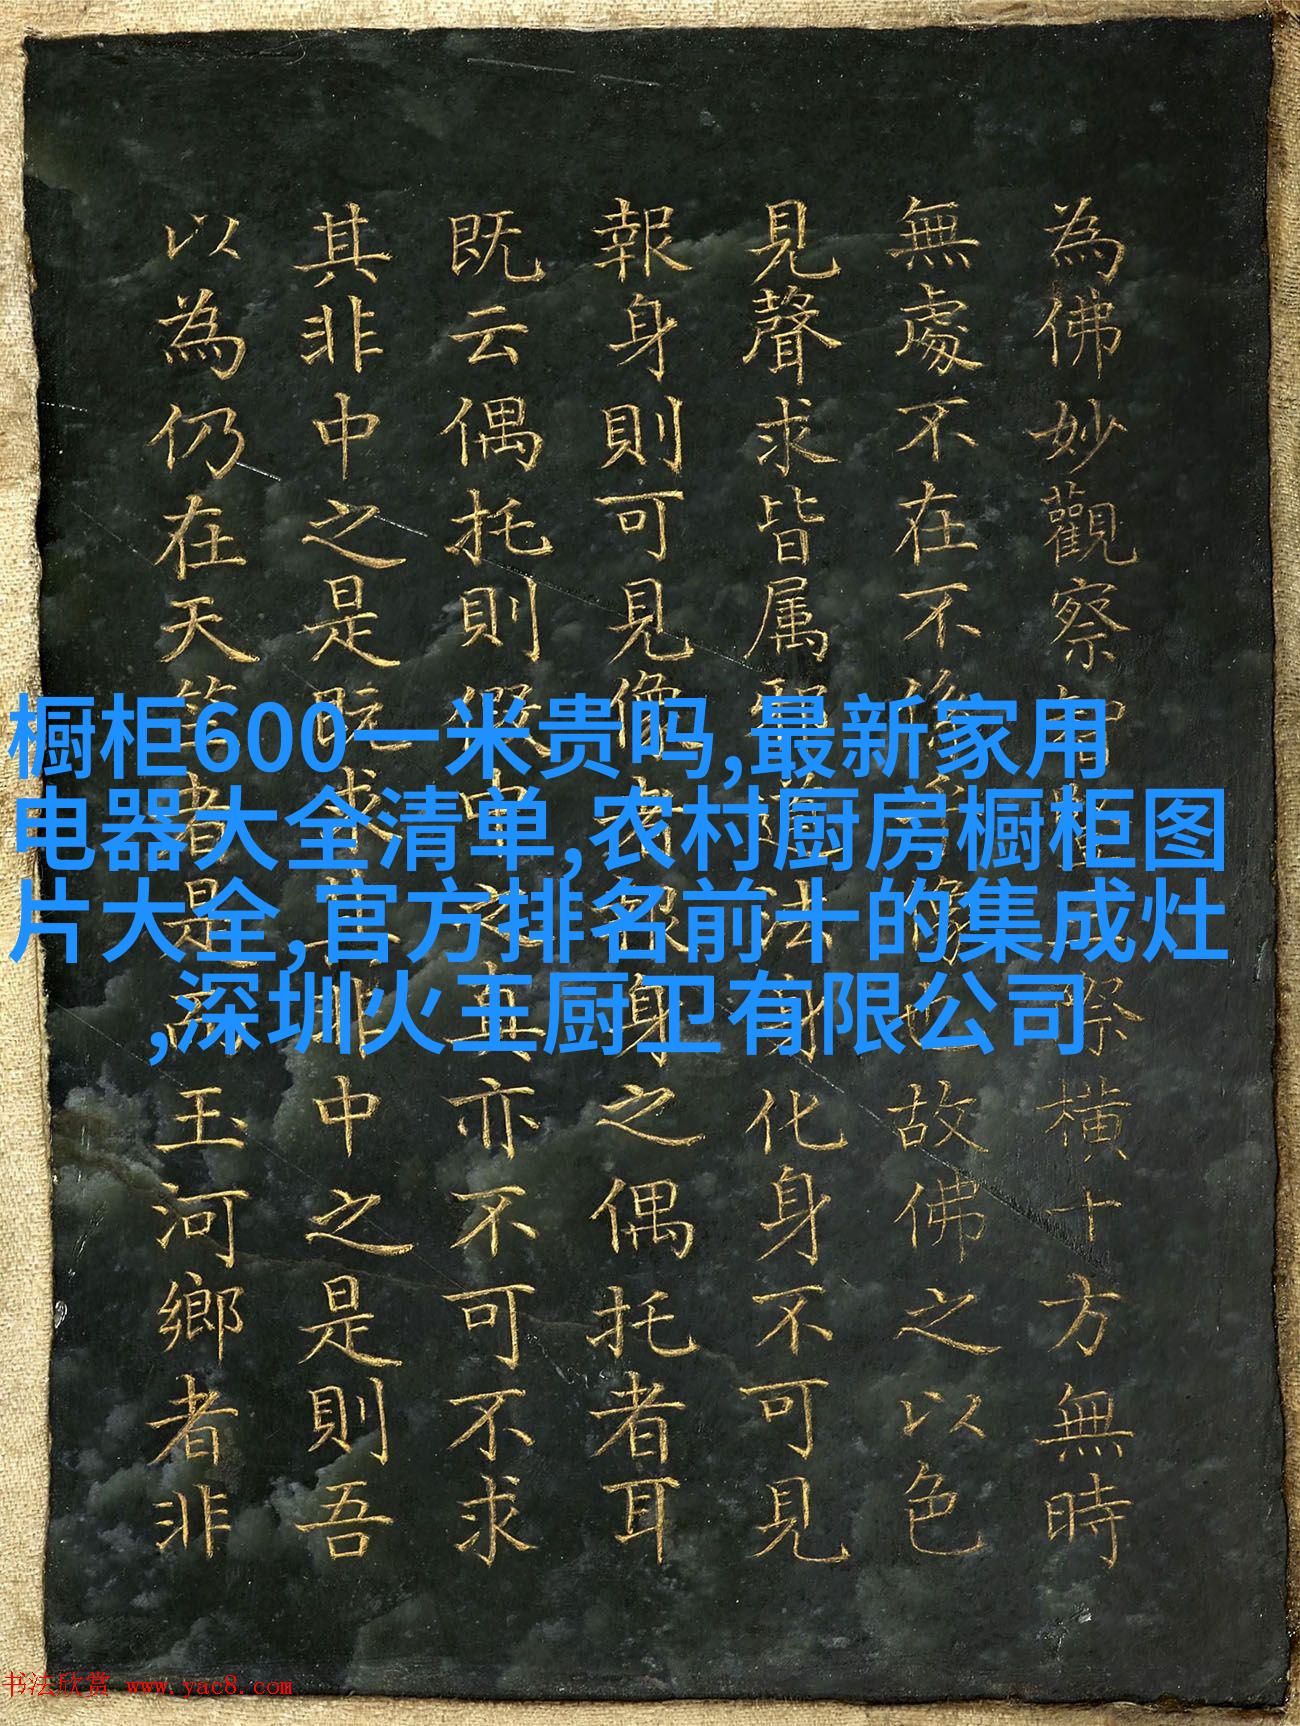 為佛妙觀察智三際横十方無時
無處不在不也故佛之以色
見聲求皆属邪道法身化身不可見
報身則可見像者報身之偶托者耳
既云偶托則假中之真亦不可不求
其非中之是既求其非中之是則吾
以為仍在天竺者是西玉河鄉者非
橱柜600一米贵吗,最新家用
电器大全清单,农村厨房橱柜图
片大全,官方排名前十的集成灶
,深圳火王厨卫有限公司
书法欣赏 www.yac8.com